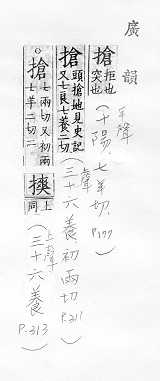 廣韻
搶 拒也突也
平聲
(十陽,七羊切,P.177)
搶 頭搶地見史記又七良七養二切
(三十六養,初兩切,P.311)
搶 七兩切又初兩七羊二切三
搡 上同
上聲
(三十六養)
P.313)